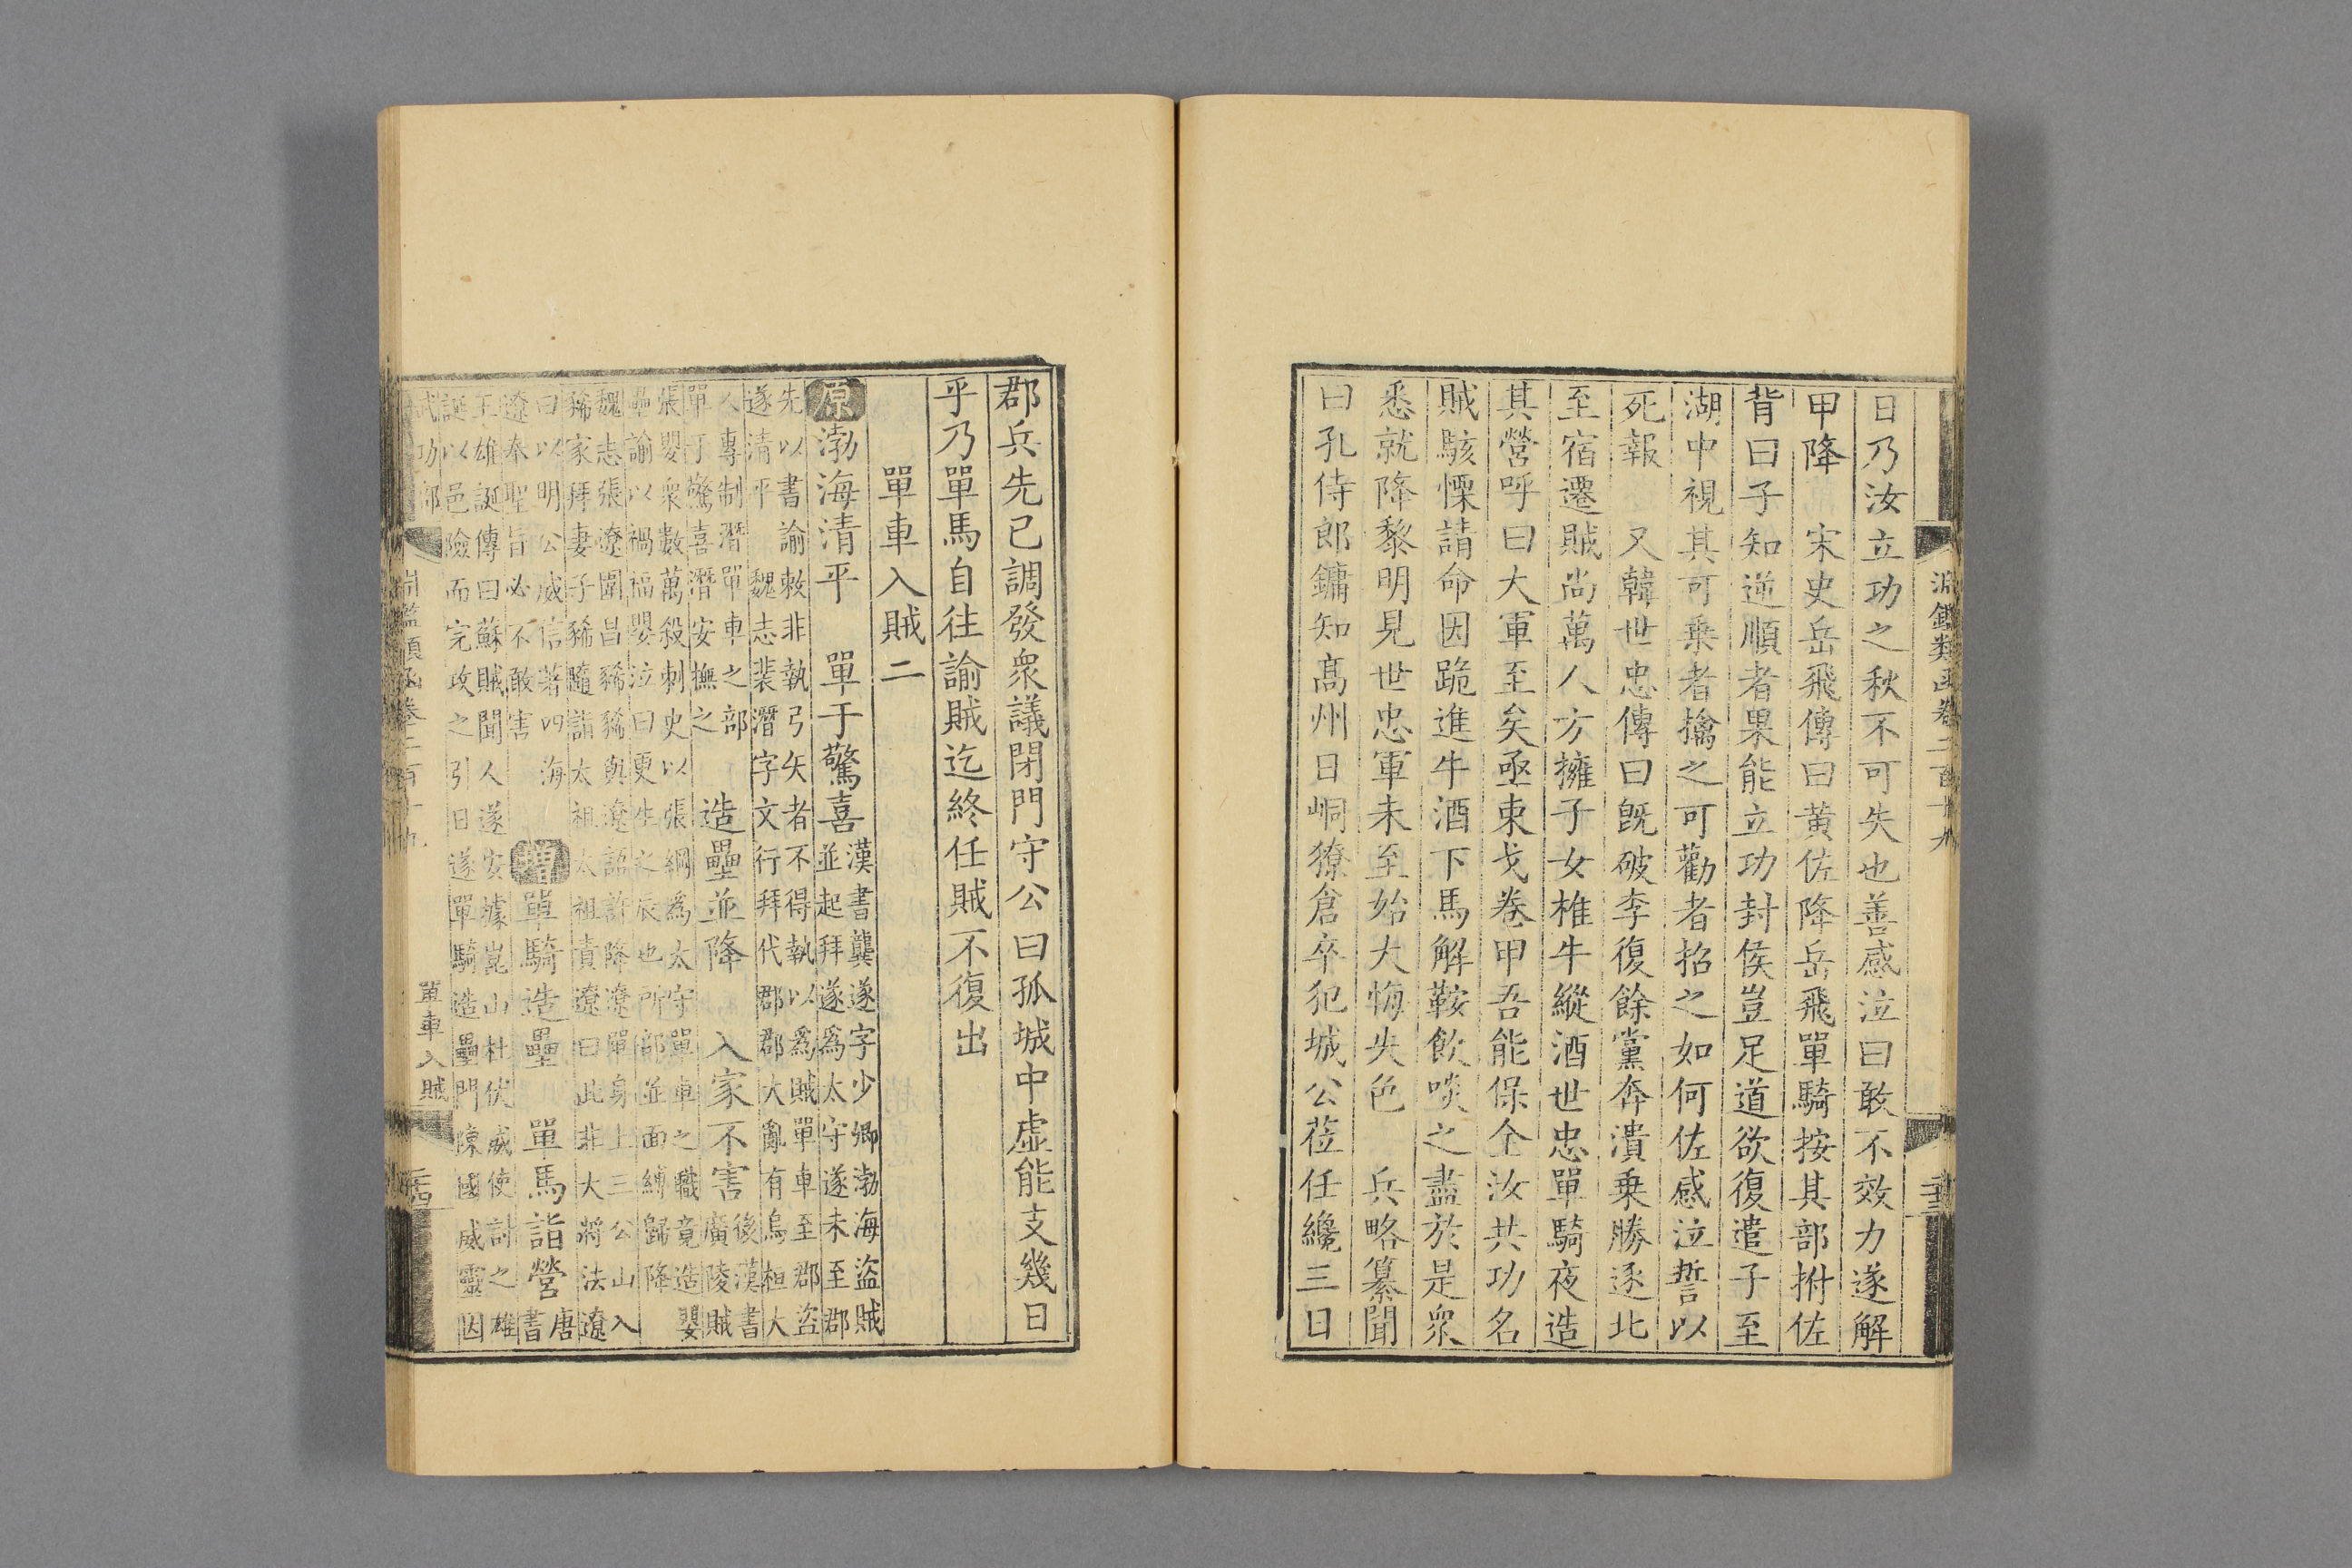 淵鑑類函卷二百十九
二十三
日乃汝立功之秋不可失也善感泣曰敢不效力遂解
甲降　宋史岳飛傳曰黃佐降岳飛單騎按其部拊佐
背曰子知逆順者果能立功封侯豈足道欲復遣子至
湖中視其可乗者擒之可勸者招之如何佐感泣誓以
死報　又韓世忠傳曰旣破李復餘黨奔潰乗勝逐北
至宿遷賊尚萬人方擁子女椎牛縱酒世忠單騎夜造
其營呼曰大軍至矣亟束戈卷甲吾能保全汝共功名
賊駭慄請命因跪進牛酒下馬解鞍飲啖之盡於是衆
悉就降黎明見世忠軍未至始大悔失色　兵略纂聞
曰孔侍郎鏞知髙州日峒獠倉卒犯城公莅任纔三日
郡兵先已調發衆議閉門守公曰孤城中虛能支幾日
乎乃單馬自往諭賊迄終任賊不復出
單車入賊二
原渤海清平　單于驚喜
漢書龔遂字少卿渤海盜賊
並起拜遂爲太守遂未至郡
先以書諭敕非執弓矢者不得執以爲賊單車至郡盜
遂清平　魏志裴潛字文行拜代郡郡大亂有烏桓大
人專制潛單車之部
單于驚喜潛安撫之
造壘並降　入家不害
後漢書
廣陵賊
張嬰衆數萬殺刺史以張綱爲太守單車之職竟造嬰
壘諭以禍福嬰泣曰更生之辰也所部並面縛歸降
魏志張遼圍昌豨豨與遼詔許降遼單身上三公山入
豨家拜妻子豨隨詣太祖太祖責遼曰此非大將法遼
曰以明公威信著四海
遼奉聖旨必不敢害
增單騎造壘　單馬詣營
唐
書
王雄誕傳曰蘇賊聞人遂安據崑山杜伏威使討之雄
誕以邑險而完攻之引日遂單騎造壘門陳國威靈因
武功部
淵鑑類函卷二百十九
單車入賊
二十四